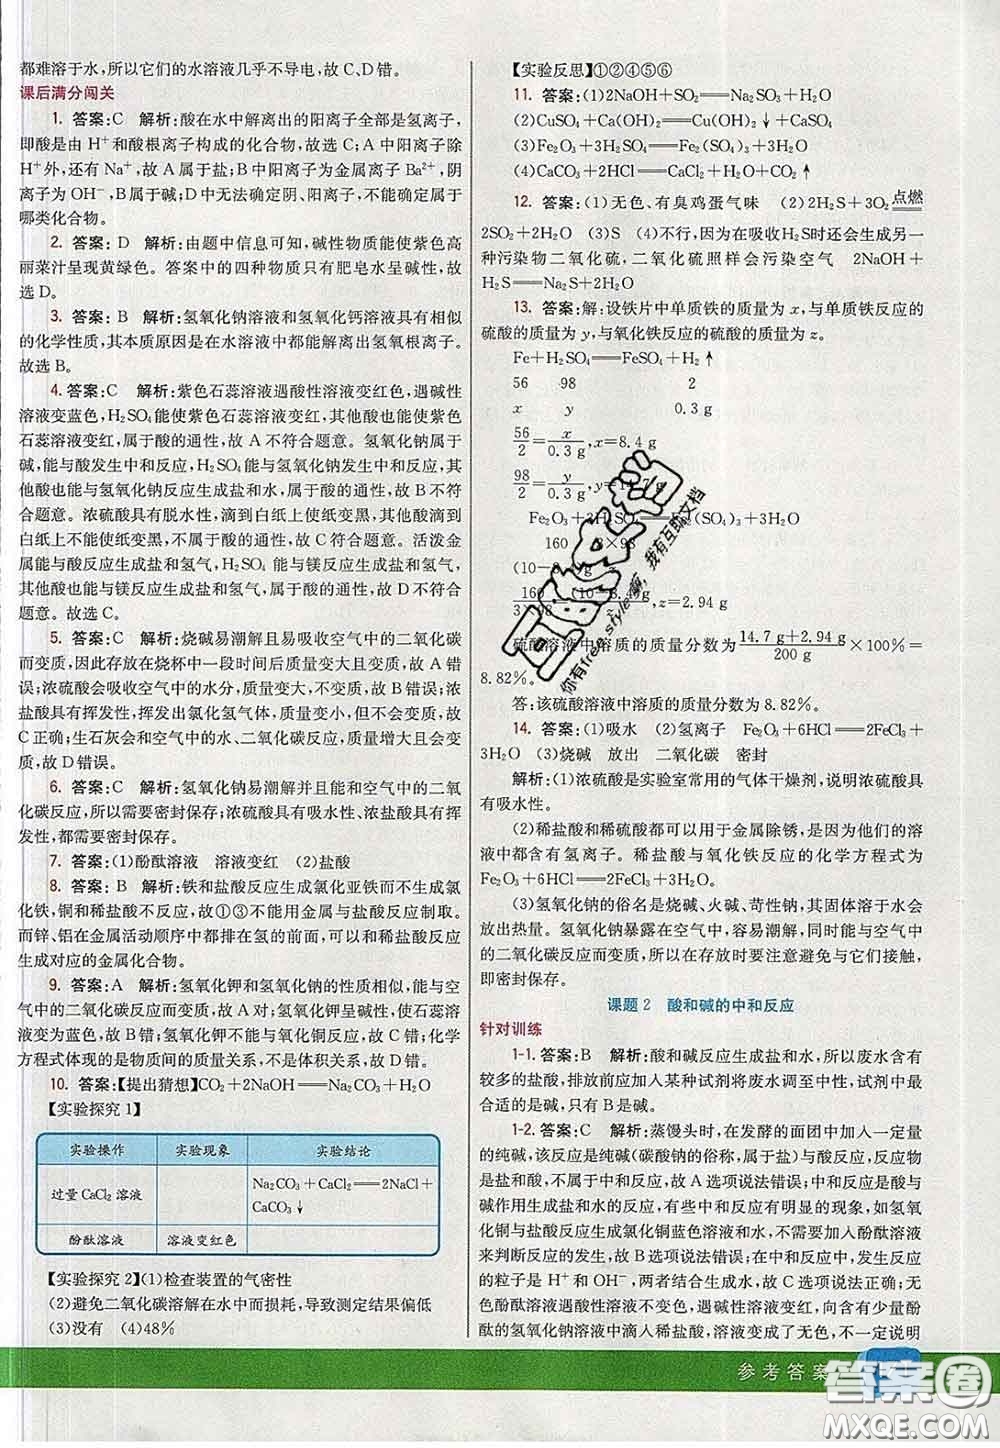 都难溶于水,所以它们的水溶液几乎不导电,故C、D错。
课后满分闯关
1. 答案:C 解析:酸在水中解离出的阳离子全部是氢离子,
即酸是由H⁺和酸根离子构成的化合物,故选C;A中阳离子除
H⁺外,还有Na⁺,故A属于盐;B中阳离子为金属离子Ba²⁺,阴
离子为OH⁻,B属于碱;D中无法确定阴、阳离子,不能确定属于
哪类化合物。
2. 答案:D 解析:由题中信息可知,碱性物质能使紫色高
丽菜汁呈现黄绿色。答案中的四种物质只有肥皂水呈碱性,故
选D。
3. 答案:B 解析:氢氧化钠溶液和氢氧化钙溶液具有相似
的化学性质,其本质原因是在水溶液中都能解离出氢氧根离子。
故选B。
4. 答案:C 解析:紫色石蕊溶液遇酸性溶液变红色,遇碱性
溶液变蓝色,H₂SO₄能使紫色石蕊溶液变红,其他酸也能使紫色
石蕊溶液变红,属于酸的通性,故A不符合题意。氢氧化钠属于
碱,能与酸发生中和反应,H₂SO₄能与氢氧化钠发生中和反应,
其他酸也能与氢氧化钠反应生成盐和水,属于酸的通性,故B不符
合题意。浓硫酸具有脱水性,滴到白纸上使纸变黑,其他酸不能
使纸变黑,不属于酸的通性,故C符合题意。活泼金
属能与酸反应生成盐和氢气,H₂SO₄能与镁反应生成盐和氢气,
其他酸也能与镁反应生成盐和氢气,属于酸的通性,故D不符合
题意。故选C。
5. 答案:C 解析:烧碱易潮解且易吸收空气中的二氧化碳
而变质,因此存放在烧杯中一段时间后质量变大,故A错误;
浓硫酸会吸收空气中的水分,质量变大,不变质,故B错误;浓
盐酸具有挥发性,挥发出氯化氢气体,质量变小,但不变质,故
C正确;生石灰会和空气中的水、二氧化碳反应,质量变大,会变
质,故D错误。
6. 答案:C 解析:氢氧化钠易潮解并且能和空气中的二氧
化碳反应,所以需要密封保存;浓硫酸具有吸水性,浓盐酸具有挥
发性,都需要密封保存。
7. 答案:(1)酚酞溶液 溶液变红 (2)盐酸
8. 答案:B 解析:铁和盐酸反应生成氯化亚铁而不生成氯
化铁,铜和稀盐酸不反应,故①③不能用金属与盐酸反应制取。
而锌、铝在金属活动顺序中都排在氢的前面,可与稀盐酸反应
生成对应的金属化合物。
9. 答案:A 解析:氢氧化钾和氢氧化钠的性质相似,能与
空气中的二氧化碳反应,故A对;氢氧化钾呈碱性,能使石蕊溶
液变为蓝色,故B错;氢氧化钾不能与氧化铜反应,故C错;化学
方程式体现的是物质间的质量关系,不是体积关系,故D错。
10. 答案:【提出猜想】CO₂+2NaOH═Na₂CO₃+H₂O
【实验探究1】
实验操作 实验现象 实验结论
过量CaCl₂溶液 Na₂CO₃+CaCl₂═2NaCl+
CaCO₃↓
酚酞溶液 溶液变红色
【实验探究2】(1)检查装置的气密性
(2)避免二氧化碳溶解在水中而损耗,导致测定结果偏低
(3)没有 (4)48%
【实验反思】①②④⑤⑥
11. 答案:(1)2NaOH+SO₂═Na₂SO₃+H₂O
(2)CuSO₄+Ca(OH)₂═Cu(OH)₂↓+CaSO₄
(3)Fe₂O₃+3H₂SO₄═Fe₂(SO₄)₃+3H₂O
(4)CaCO₃+2HCl═CaCl₂+H₂O+CO₂↑
12. 答案:(1)无色、有臭鸡蛋气味 (2)2H₂S+3O₂ 点燃═
2SO₂+2H₂O (3)S (4)不行,因为在吸收H₂S时还会生成另一
种污染物二氧化硫,二氧化硫照样会污染空气 2NaOH
+H₂S═Na₂S+2H₂O
13. 答案:解:设铁片中单质铁的质量为x,与单质铁反应的
硫酸的质量为y,与氧化铁反应的硫酸的质量为z。
Fe+H₂SO₄═FeSO₄+H₂↑
56 98 2
x y 0.3 g
56/2=x/0.3 g,x=8.4 g
98/2=y/0.3 g,y=14.7 g
Fe₂O₃+3H₂SO₄═Fe₂(SO₄)₃+3H₂O
160 3×98
(10-8.4)g z
160/3×98=(10-8.4)g/z,z=2.94 g
硫酸溶液中溶质的质量分数为14.7 g+2.94 g/200 g×100%=
8.82%。
答:该硫酸溶液中溶质的质量分数为8.82%。
14. 答案:(1)吸水 (2)氢离子 Fe₂O₃+6HCl═2FeCl₃+
3H₂O (3)烧碱 放出 二氧化碳 密封
解析:(1)浓硫酸是实验室常用的气体干燥剂,说明浓硫酸具
有吸水性。
(2)稀盐酸和稀硫酸都可以用于金属除锈,是因为它们的溶
液中都含有氢离子。稀盐酸与氧化铁反应的化学方程式为
Fe₂O₃+6HCl═2FeCl₃+3H₂O。
(3)氢氧化钠的俗名是烧碱、火碱、苛性钠,其固体溶于水会
放出热量。氢氧化钠暴露在空气中,容易潮解,同时能与空气中
的二氧化碳反应而变质,所以在存放时要注意避免与它们接触,
即密封保存。
课题2 酸和碱的中和反应
针对训练
1-1. 答案:B 解析:酸和碱反应生成盐和水,所以废水中含有
较多的盐酸,排放前应加入某种试剂将废水调至中性,试剂中最
合适的是碱,只有B是碱。
1-2. 答案:C 解析:蒸馒头时,在发酵的面团中加入一定量
的纯碱,该反应是纯碱(碳酸钠的俗称,属于盐)与酸反应,反应物
是盐和酸,不属于中和反应,故A选项说法错误;中和反应是酸与
碱作用生成盐和水的反应,有些中和反应有明显的现象,如氢氧
化铜与盐酸反应生成氯化铜蓝色溶液和水,不需要加入指示剂
来判断反应的发生,故B选项说法错误;在中和反应中,发生反应
的粒子是H⁺和OH⁻,两者结合生成水,故C选项说法正确;无
色酚酞溶液遇酸性溶液不变色,遇碱性溶液变红,向含有少量酚
酞的氢氧化钠溶液中滴入稀盐酸,溶液变成了无色,不一定说明
参考答案
答案圈
MXQE.COM